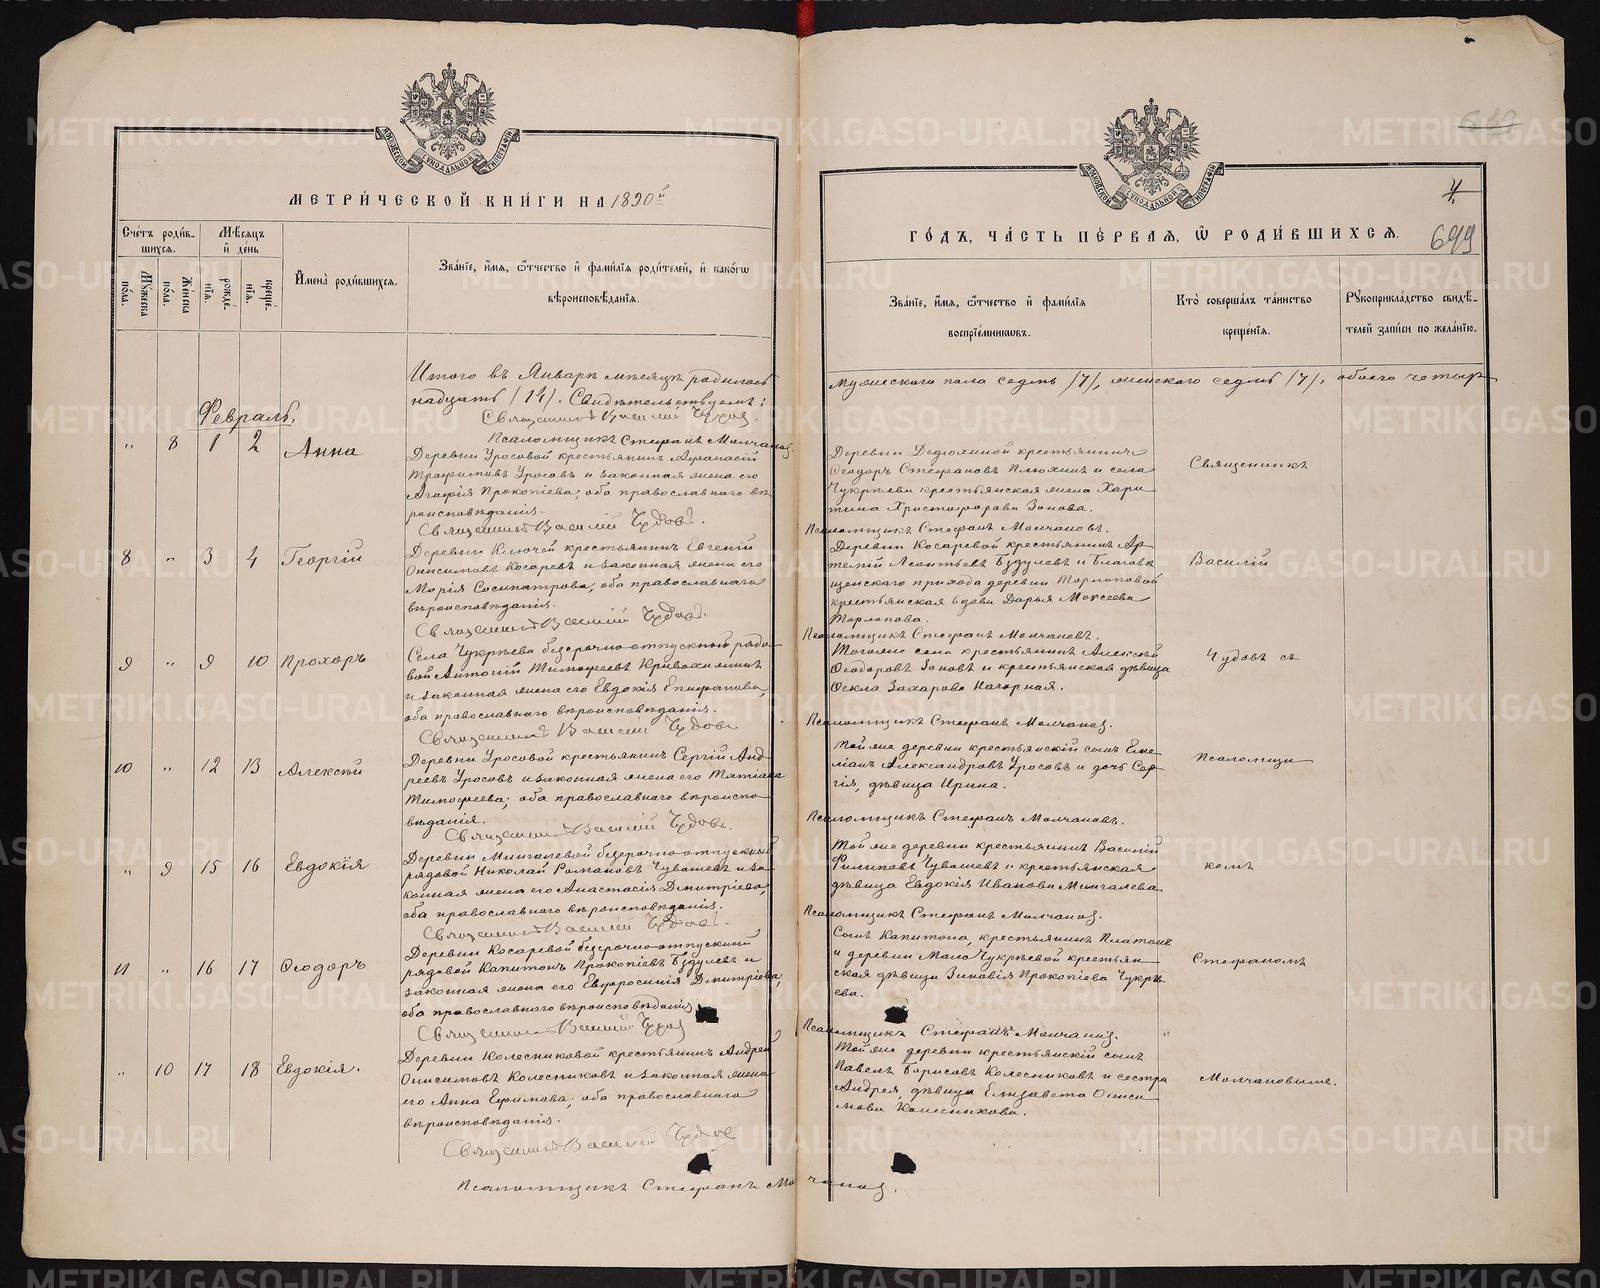 МЕТРИ́ЧЕСКОЙ КНИ́ГИ НА 1890й
Сче́тъ роди́в-
шихся.
Му́жеска
по́ла.
Же́нска
по́ла.
Мѣсяцъ
и де́нь
рожде́-
нїя.
креще́-
нїя.
Имена̀ роди́вшихся.
Зва́нїе, и́мя, ѻ́тчество и фами́лїя роди́телей, и како́гѡ
вѣроисповѣ́данїя.
Итого въ Январѣ мѣсяцѣ родилось
надцать /14/. Свидѣтельствуемъ:
Священникъ Василій Чудов
Псаломщикъ Стефанъ Молчанов.
Февраль.
" 8 1 2 Анна
Деревни Уросовой крестьянинъ Афанасій
Трофимовъ Уросовъ и законная жена его
Агафія Прокопіева; оба православнаго вѣ
роисповѣданія.
Священникъ Василій Чудовъ.
8 " 3 4 Георгій
Деревни Ключей крестьянинъ Евгеній
Онисимовъ Косаревъ и законная жена его
Марія Сосипатрова, оба православнаго
вѣроисповѣданія.
Священникъ Василій Чудовъ.
9 " 9 10 Прохоръ
Села Чукрѣева безсрочно-отпускный рядо
вой Антоній Тимофеевъ Кривохижинъ
и законная жена его Евдокія Епифанова,
оба православнаго вѣроисповѣданія.
Священникъ Василій Чудовъ
10 " 12 13 Алексѣй
Деревни Уросовой крестьянинъ Сергій Анд
реевъ Уросовъ и законная жена его Татіана
Тимофеева; оба православнаго вѣроиспо
вѣданія.
Священникъ Василій Чудовъ.
" 9 15 16 Евдокія
Деревни Мингалевой безсрочно-отпускный
рядовой Николай Романовъ Чувашевъ и за
конная жена его Анастасія Дмитріева,
оба православнаго вѣроисповѣданія.
Священникъ Василій Чудовъ.
11 " 16 17 Ѳеодоръ
Деревни Косаревой безсрочно-отпускный
рядовой Капитонъ Прокопіевъ Будулевъ и
законная жена его Евфросинія Дмитріева,
оба православнаго вѣроисповѣданія
Священникъ Василій Чудов
" 10 17 18 Евдокія.
Деревни Колесниковой крестьянинъ Андрей
Онисимовъ Колесниковъ и законная жена
его Анна Ефимова; оба православнаго
вѣроисповѣданія.
Священникъ Василій Чудов
Псаломщикъ Стефанъ Молчанов.
4
699
ГО́ДЪ, ЧА́СТЬ ПЕ́РВАЯ, Ѡ РОДИ́ВШИХСЯ.
Зва́нїе, и́мя, ѻ́тчество и фами́лїя
воспрїе́мниковъ.
Кто̀ соверша́лъ та́инство
креще́нїя.
Рукоприкла́дство свидѣ́-
телей за́писи по жела́нїю.
мужескаго пола седмь /7/, женскаго седмь /7/, обоего четыр
Деревни Дедюхиной крестьянинъ
Ѳеодоръ Стефановъ Плюхинъ и села
Чукрѣева крестьянская жена Хари
тина Христофорова Зонова.
Священникъ
Псаломщикъ Стефанъ Молчановъ.
Деревни Косаревой крестьянинъ Ар
темій Леонтьевъ Будулевъ и Благовѣ
щенскаго прихода деревни Торлоповой
крестьянская вдова Дарья Моисеева
Торлопова.
Василій
Псаломщикъ Стефанъ Молчановъ.
Тогоже села крестьянинъ Алексѣй
Ѳеодоровъ Зоновъ и крестьянская дѣвица
Ѳекла Захарова Нагорная.
Чудовъ съ
Псаломщикъ Стефанъ Молчанов.
Тойже деревни крестьянскій сынъ Еме
ліанъ Александровъ Уросовъ и дочь Сер
гія, дѣвица Ирина.
Псаломщи
Псаломщикъ Стефанъ Молчановъ.
Тойже деревни крестьянинъ Василій
Филиповъ Чувашевъ и крестьянская
дѣвица Евдокія Иванова Мингалева
комъ
Псаломщикъ Стефанъ Молчанов.
Сынъ Капитона, крестьянинъ Платонъ
и деревни Мало-Чукрѣевой крестьян
ская дѣвица Зиновія Прокопіева Чукрѣ
ева.
Стефаномъ
Псаломщикъ Стефанъ Молчанов.
Тойже деревни крестьянскій сынъ
Павелъ Борисовъ Колесниковъ и сестра
Андрея, дѣвица Елизавета Ониси
мова Колесникова.
Молчановымъ.
METRIKI.GASO-URAL.RU